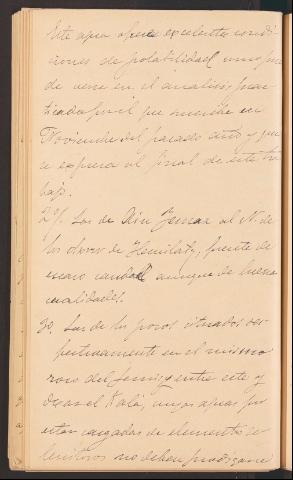 Este agua ofrece excelentes condi-
ciones de potabilidad como pue
de verse en el analisis prac-
ticado por el que suscribe en
Noviembre del pasado año y que
se expresa al final de este tra
bajo.
2º. Las de Ain al N. de
los de fuente de
escaso caudal aunque de buenas
cualidades.
3º. Las de los pozos situados res-
pectivamente en el mismo
zoco del entre este y
Dar el Xalá, cuyas aguas por
estar cargadas de elementos se-
leniosos no deben prodigarse